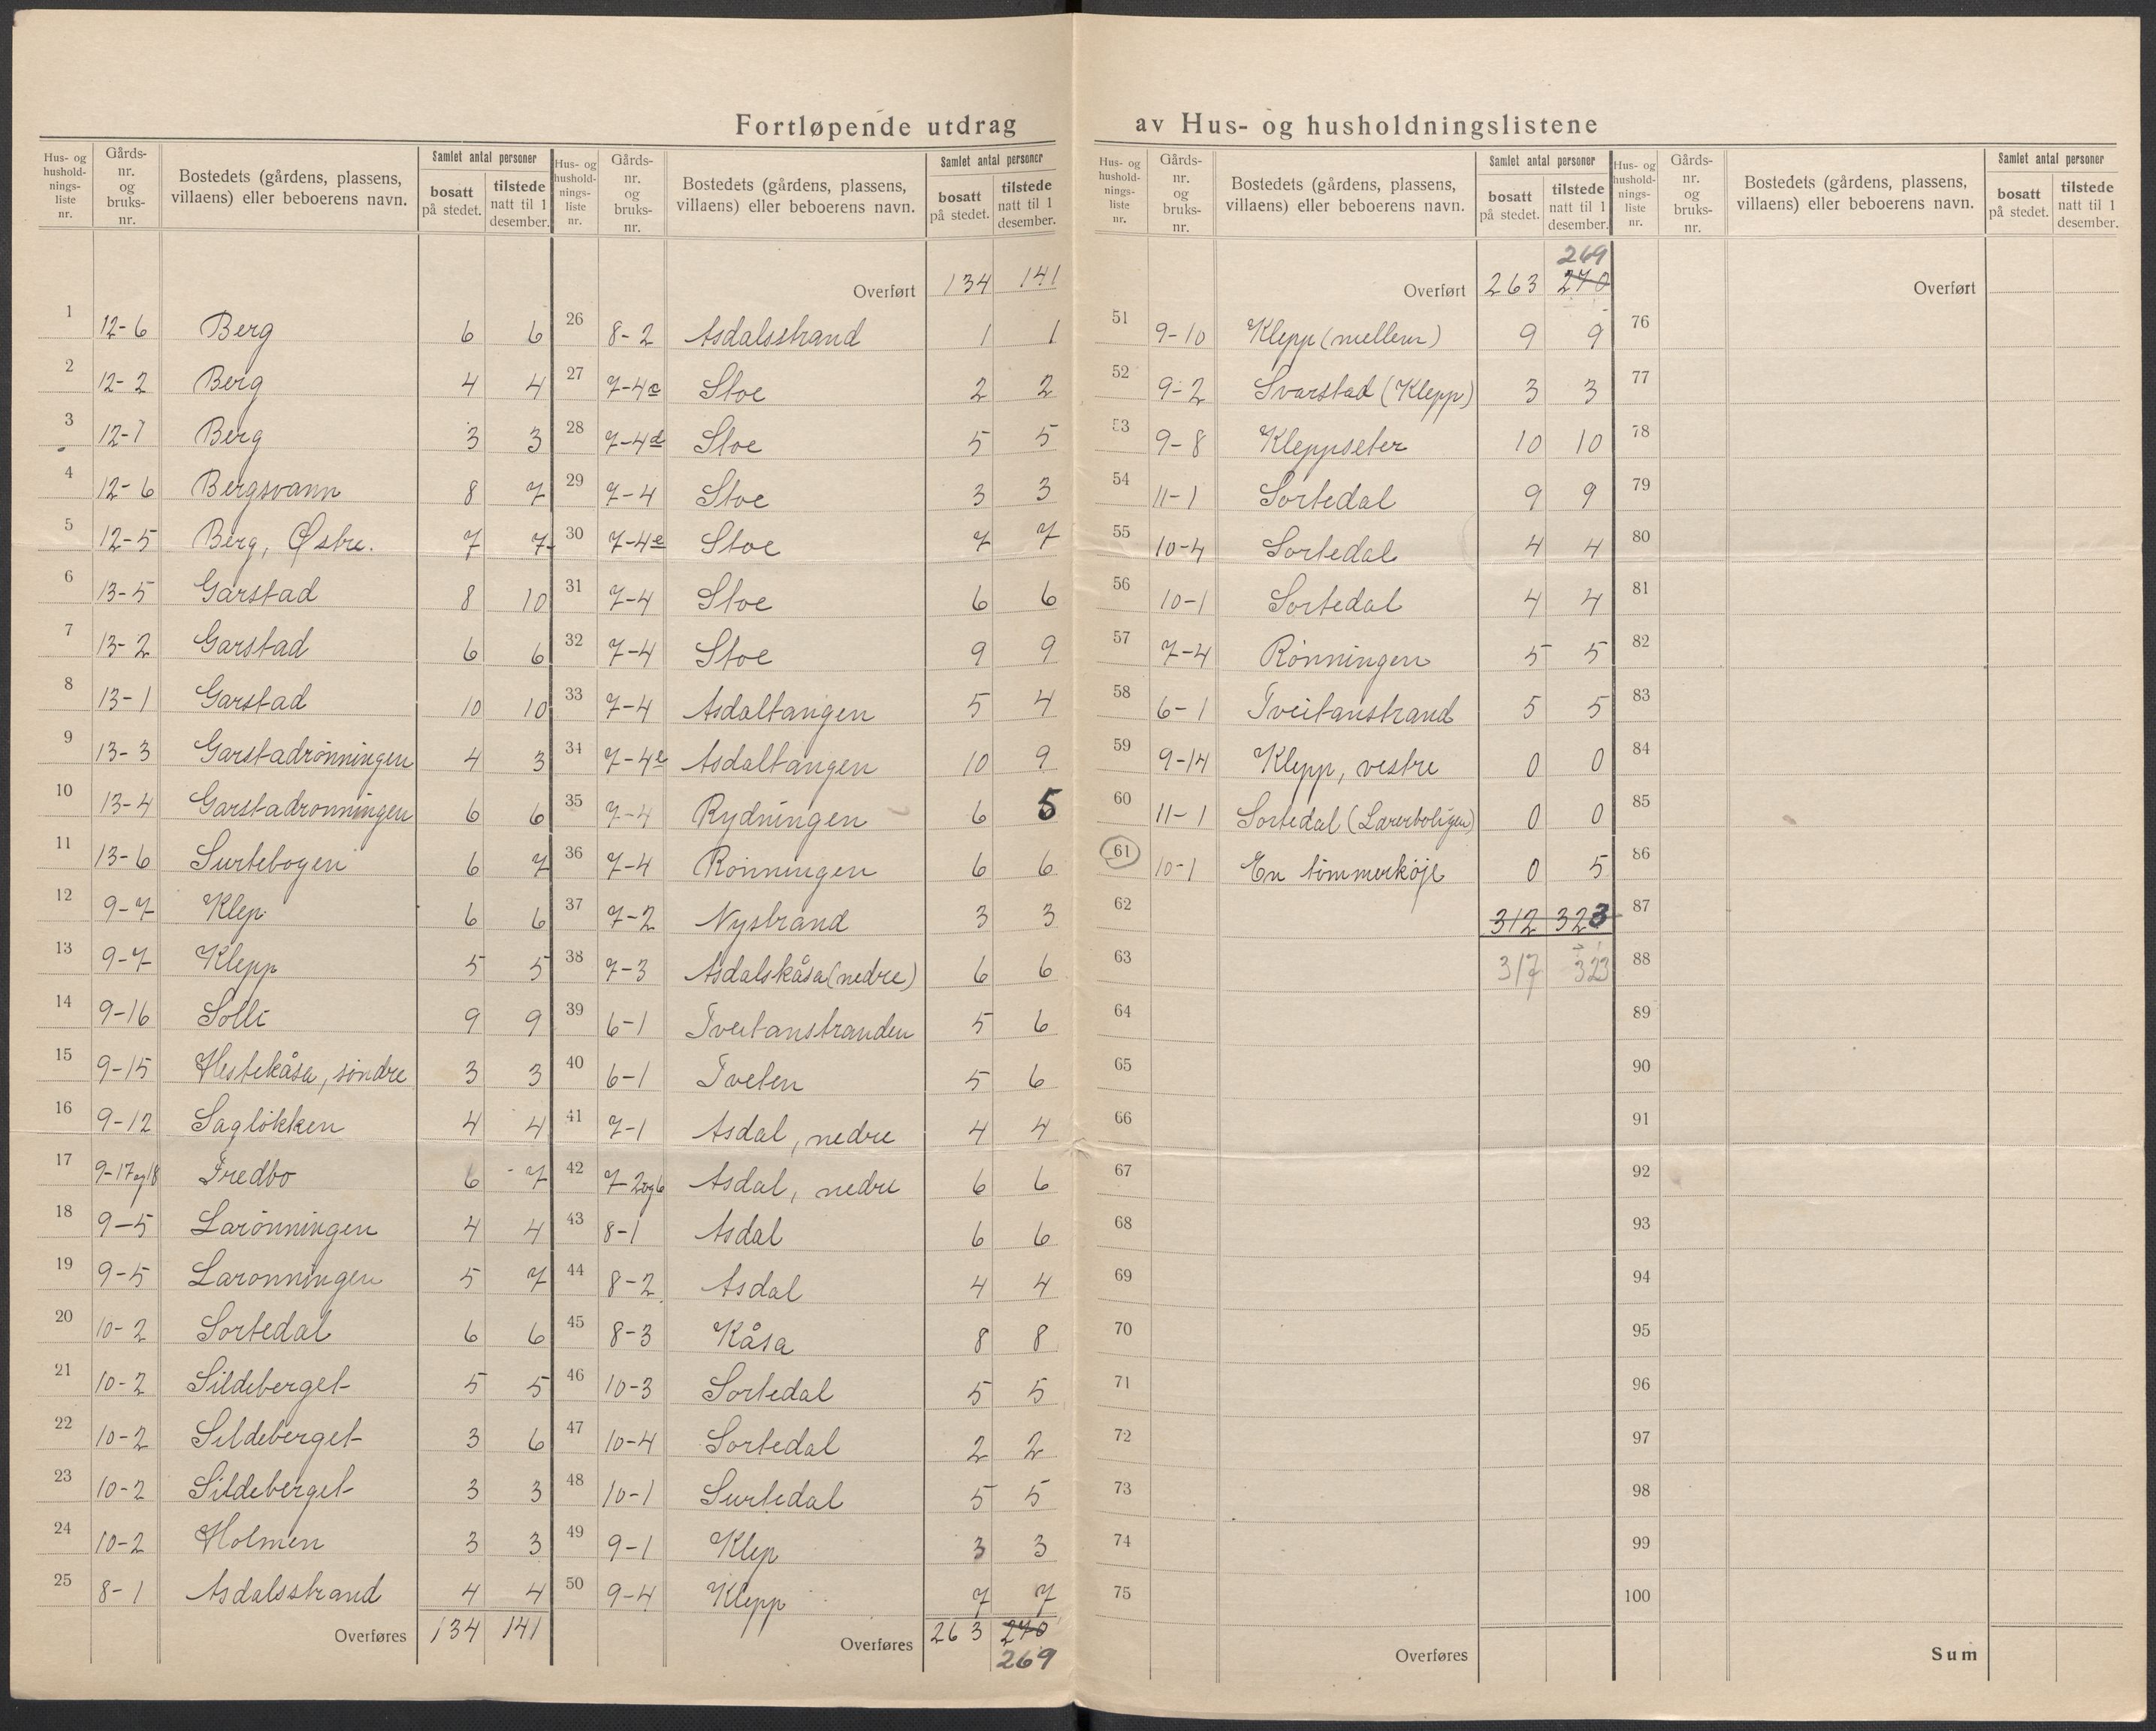 Fortløpende utdrag av Hus- og husholdningslistene
Hus- og hushold- nings- liste nr. | Gårds- nr. og bruks- nr. | Bostedets (gårdens, plassens, villaens) eller beboerens navn. | Samlet antal personer | bosatt på stedet. | tilstede natt til 1 desember.
1 12-6 Berg 6 6
2 12-2 Berg 4 4
3 12-7 Berg 3 3
4 12-6 Bergsvann 8 7
5 12-5 Berg, Østre. 7 7
6 13-5 Garstad 8 10
7 13-2 Garstad 6 6
8 13-1 Garstad 10 10
9 13-3 Garstadrønningen 4 3
10 13-4 Garstadrønningen 6 6
11 13-6 Surtebogen 6 7
12 9-7 Klep 6 6
13 9-7 Klepp 5 5
14 9-16 Solli 9 9
15 9-15 Hestekåsa, søndre 3 3
16 9-12 Sagløkken 4 4
17 9-17og18 Fredbo 6 7
18 9-5 Larønningen 4 4
19 9-5 Larønningen 5 7
20 10-2 Sortedal 6 6
21 10-2 Sildeberget 5 5
22 10-2 Sildeberget 3 6
23 10-2 Sildeberget 3 3
24 10-2 Holmen 3 3
25 8-1 Asdalsstrand 4 4
Overføres 134 141
Hus- og hushold- nings- liste nr. | Gårds- nr. og bruks- nr. | Bostedets (gårdens, plassens, villaens) eller beboerens navn. | Samlet antal personer | bosatt på stedet. | tilstede natt til 1 desember.
Overført 134 141
26 8-2 Asdalsstrand 1 1
27 7-4c Stoe 2 2
28 7-4d Stoe 5 5
29 7-4 Stoe 3 3
30 7-4e Stoe 7 7
31 7-4 Stoe 6 6
32 7-4 Stoe 9 9
33 7-4 Asdaltangen 5 4
34 7-4e Asdaltangen 10 9
35 7-4 Rydningen 6 5
36 7-4 Rønningen 6 6
37 7-2 Nystrand 3 3
38 7-3 Asdalskåsa (nedre) 6 6
39 6-1 Tveitanstranden 5 6
40 6-1 Tveten 5 6
41 7-1 Asdal, nedre 4 4
42 7-2og6 Asdal, nedre 6 6
43 8-1 Asdal 6 6
44 8-2 Asdal 4 4
45 8-3 Kåsa 8 8
46 10-3 Sortedal 5 5
47 10-4 Sortedal 2 2
48 10-1 Surtedal 5 5
49 9-1 Klep 3 3
50 9-4 Klepp 7 7
Overføres 263 270
269
Hus- og hushold- nings- liste nr. | Gårds- nr. og bruks- nr. | Bostedets (gårdens, plassens, villaens) eller beboerens navn. | Samlet antal personer | bosatt på stedet. | tilstede natt til 1 desember.
269
Overført 263 270
51 9-10 Klepp (mellem) 9 9
52 9-2 Svarstad (Klepp) 3 3
53 9-8 Kleppseter 10 10
54 11-1 Sortedal 9 9
55 10-4 Sortedal 4 4
56 10-1 Sortedal 4 4
57 7-4 Rønningen 5 5
58 6-1 Tveitanstrand 5 5
59 9-14 Klepp, vestre 0 0
60 11-1 Sortedal (Lærerboligen) 0 0
61 10-1 En tømmerkøje 0 5
62 312 323
63 317 323
64
65
66
67
68
69
70
71
72
73
74
75
Overføres
Hus- og hushold- nings- liste nr. | Gårds- nr. og bruks- nr. | Bostedets (gårdens, plassens, villaens) eller beboerens navn. | Samlet antal personer | bosatt på stedet. | tilstede natt til 1 desember.
Overført
76
77
78
79
80
81
82
83
84
85
86
87
88
89
90
91
92
93
94
95
96
97
98
99
100
Sum